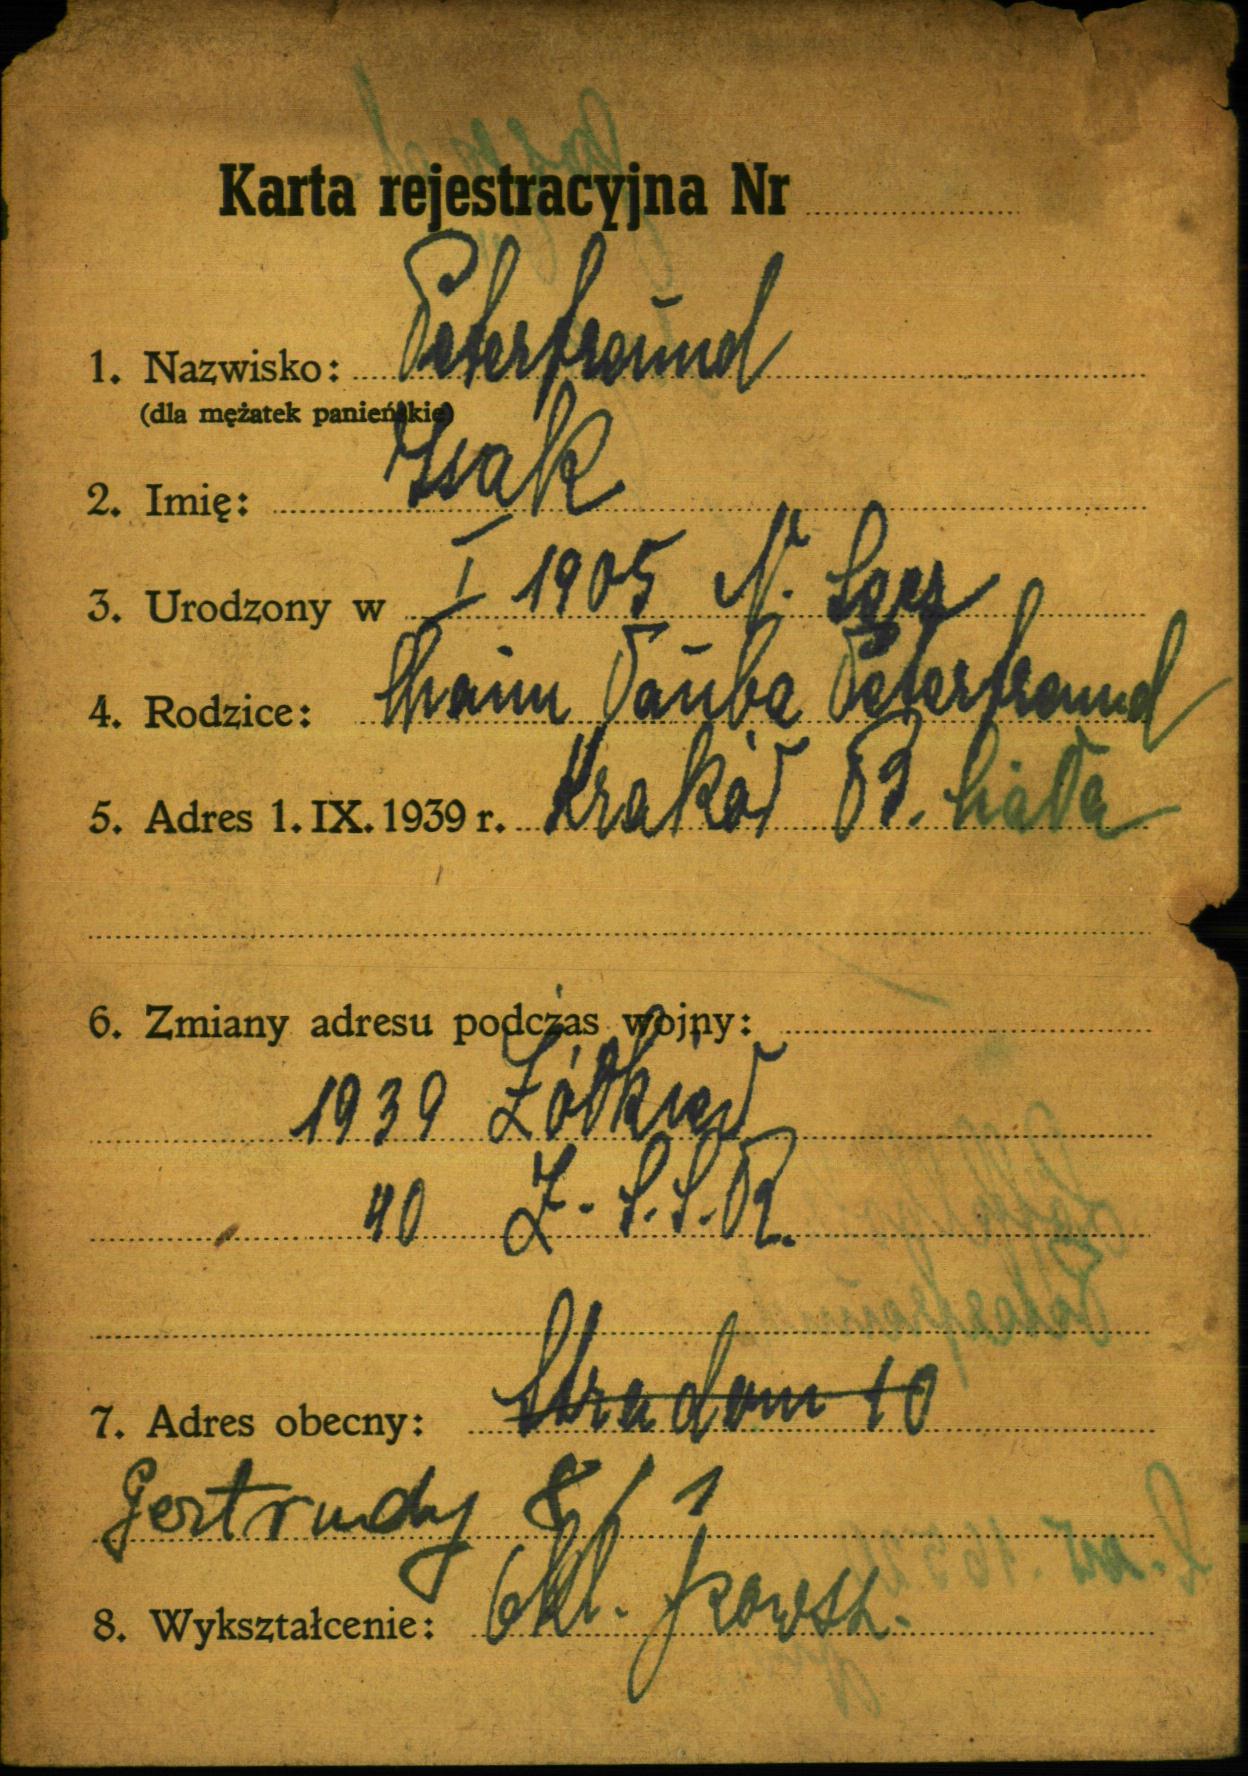 Karta rejestracyjna Nr
1. Nazwisko: Peterfreund
(dla mężatek panieńskie)
2. Imię: Izak
3. Urodzony w I 1905 N. Sącz
4. Rodzice: Chaim Pauba Peterfreund
5. Adres 1. IX. 1939 r. Kraków
6. Zmiany adresu podczas wojny:
1939 Żółkiew
40 Z. S. S. R.
7. Adres obecny: Stradom 10
Gertrudy 8/1
8. Wykształcenie: 6 kl. powsz.